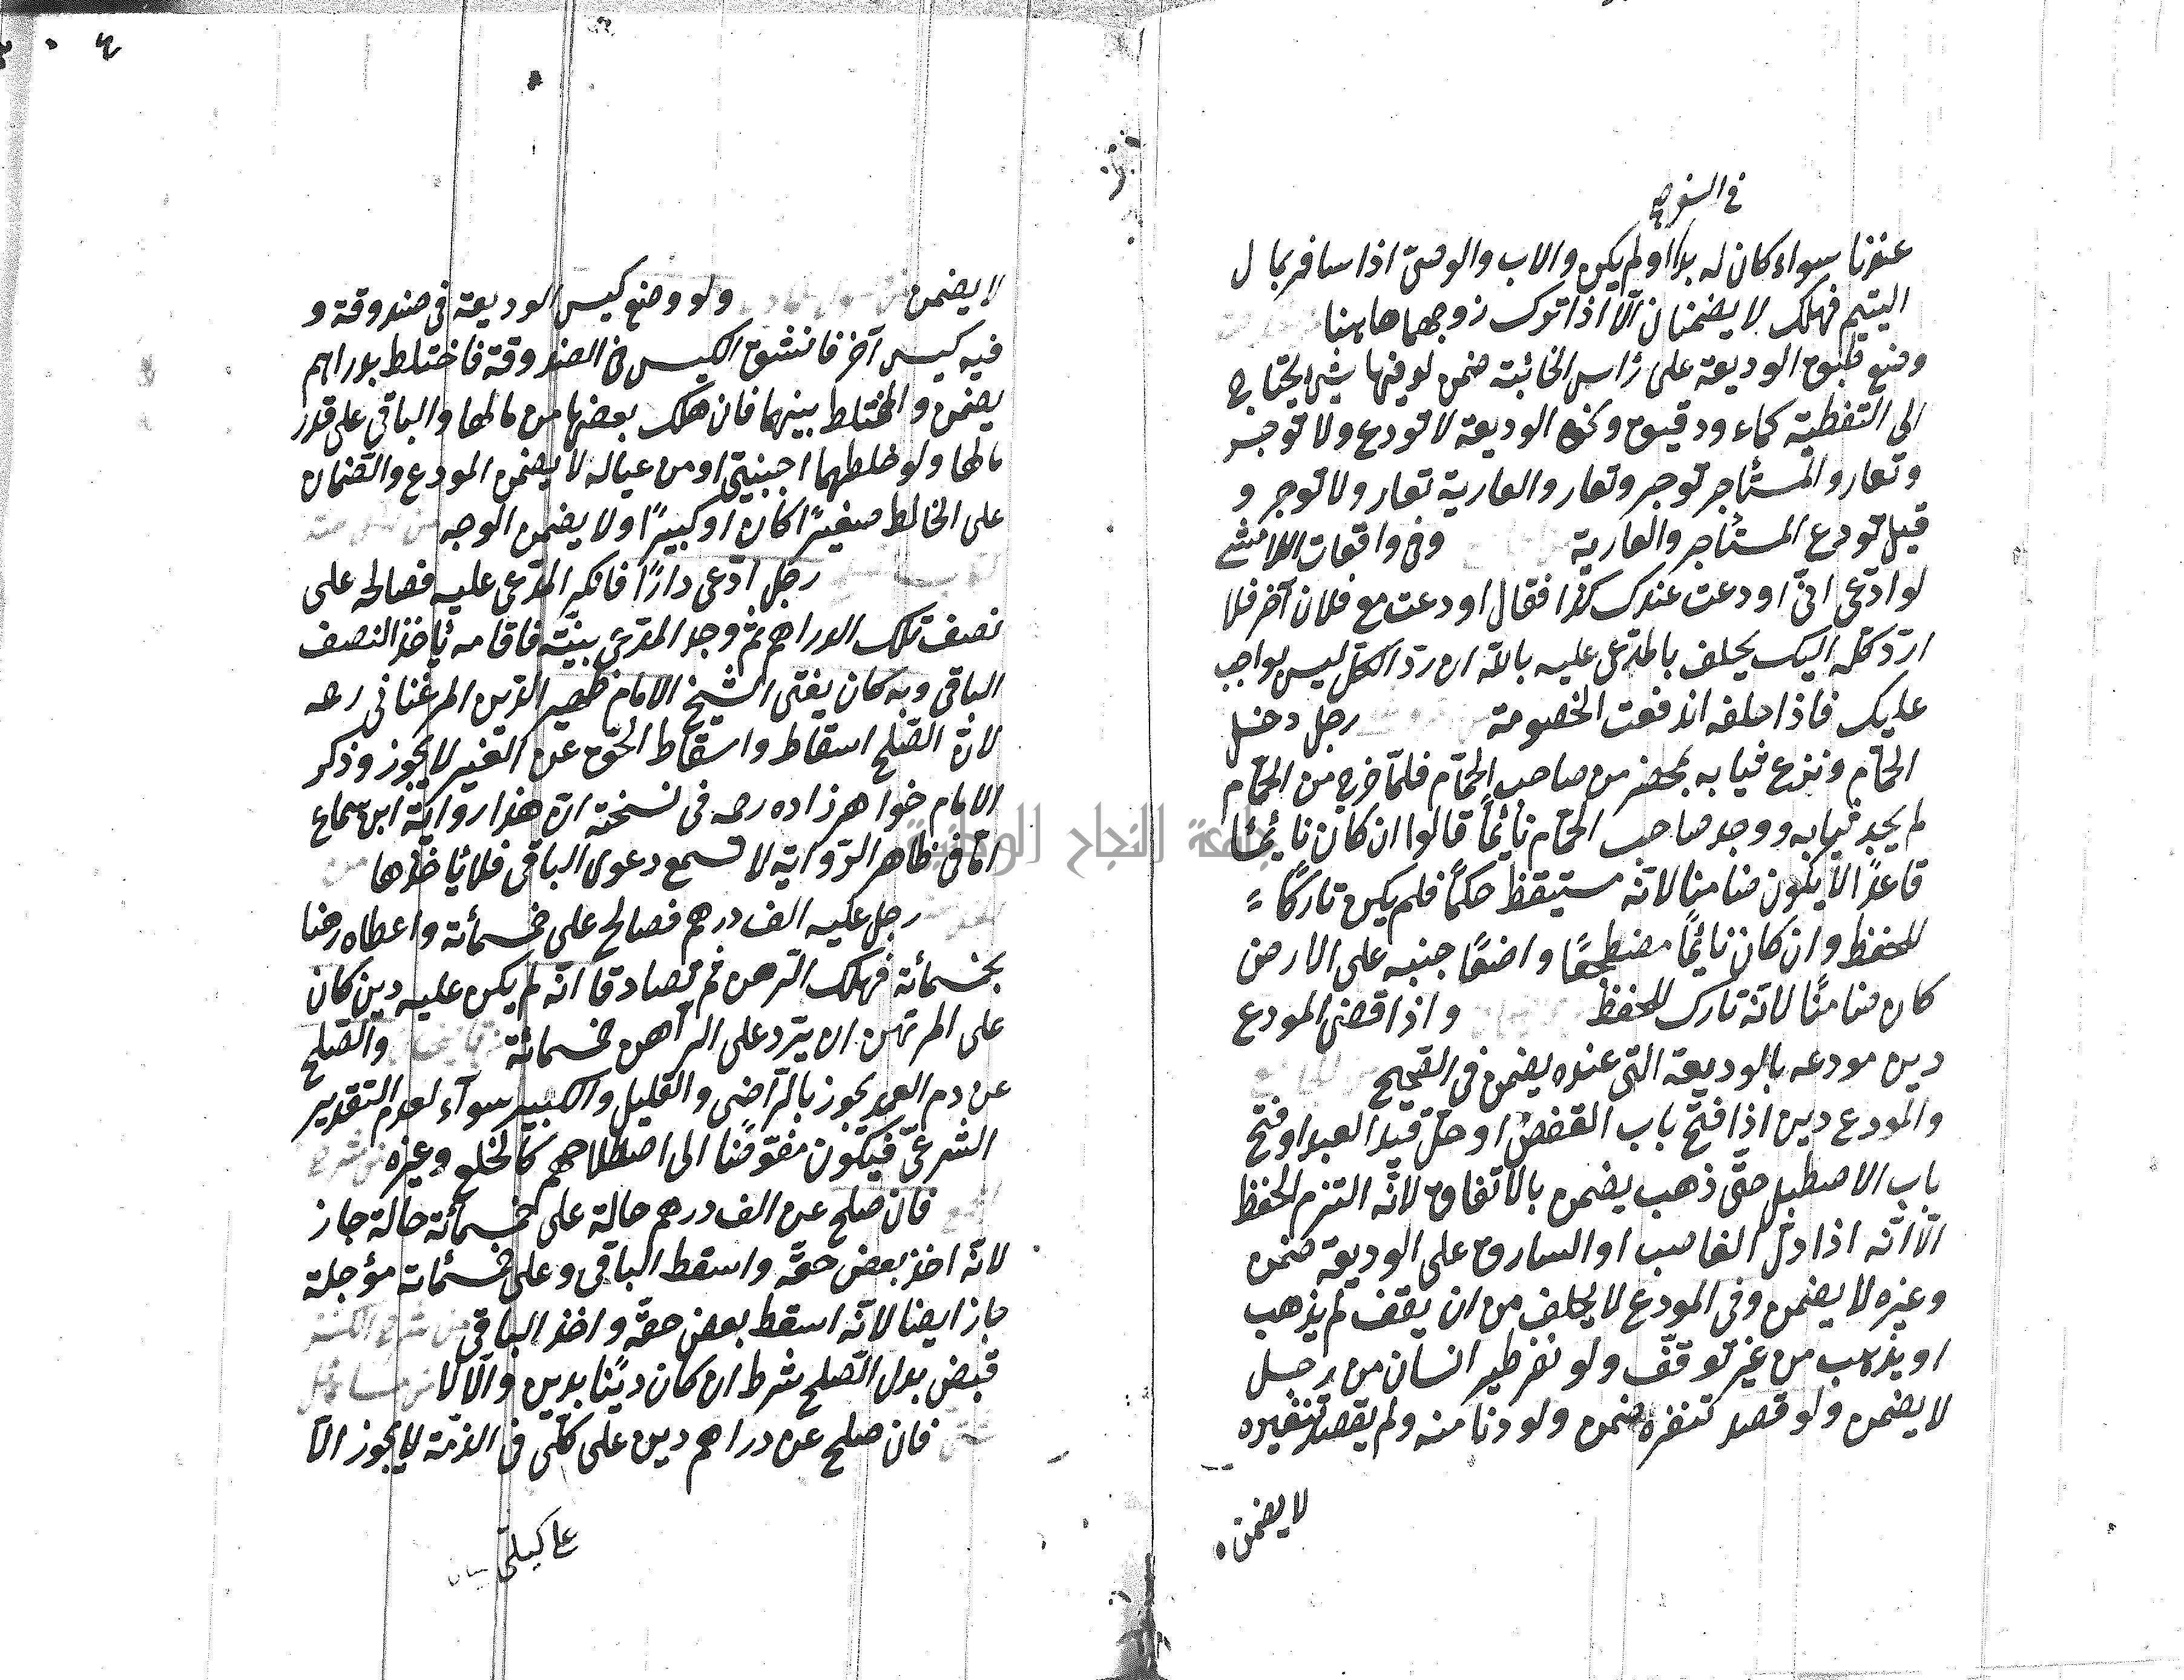 في السفر صح
عندنا سواء كان له بدا او لم يكن والاب والوصي اذا سافر بمال
اليتيم فهلك لا يضمنان الّا اذا ترك زوجهما هاهنا
وضع طبق الوديعة على رأس الخابية ضمن لو فيها شئ يحتاج
الى التغطية كماء ودقيق ونحو الوديعة لا تودع ولا توجر
وتعار والمستأجر توجر وتعار والعارية تعار ولا توجر و
قيل تودع المستأجر والعارية وفي واقعات اللامشي
لو ادّعى انّي اودعت عندك كذا فقال اودعت مع فلان آخر فلا
اردّ كلّه اليك يحلف بالمدّعى عليه بالله ان ردّ الكلّ ليس بواجب
عليك فاذا حلفه اندفعت الخصومة رجل دخل
الحمّام ونزع ثيابه بمحضر من صاحب الحمّام فلمّا خرج من الحمّام
لم يجد ثيابه ووجد صاحب الحمّام نائمًا قالوا ان كان نائمًا
قاعدًا لا يكون ضامنا لانّه مستيقظ حكمًا فلم يكن تاركًا
للحفظ وان كان نائمًا مضطجعًا واضعًا جنبه على الارض
كان ضامنًا لانّه تارك للحفظ واذا قضى المودع
دين مودعه بالوديعة التي عنده يضمن في الصّحيح
والمودع دين اذا فتح باب القفص او حلّ قيد العبد او فتح
باب الاصطبل حتّى ذهب يضمن بالاتفاق لانّه التزم الحفظ
الّا انّه اذا دلّ الغاصب او السارق على الوديعة ضمن
وغيره لا يضمن وفي المودع لا يحلف من ان يقف ثم يذهب
او يذهب من غير توقّف ولو نفر طير انسان من رجل
لا يضمن ولو قصد تنفره ضمن ولو دنا منه ولم يقصد تنفيره
لا يضمن
لا يضمن ولو وضع كيس الوديعة في صندوقة و
فيه كيس آخر فانشق الكيس في الصندوقة فاختلط بدراهم
يضمن والمختلط بينهما فان هلك بعضها من مالها والباقي على قدر
مالها ولو خلطهما اجنبيّ او من عياله لا يضمن المودع والضّمان
على الخالط صغيرًا كان او كبيرًا ولا يضمن الوجه
رجل ادّعى دارًا فانكر المدّعى عليه فصالحه على
نصف تلك الدراهم ثمّ وجد المدّعي بيّنة فاقامه يأخذ النصف
الباقي وبه كان يفتي الشيخ الامام ظهير الدّين المرغناني رحه
لانّ الصّلح اسقاط واسقاط الحقّ عن الغير لا يجوز وذكر
الامام خواهر زاده رحه في نسخته انّ هذا رواية ابن سماع
امّا في ظاهر الرّواية لا تسمع دعوى الباقي فلا يأخذها
رجل عليه الف درهم فصالح على خمسمائة واعطاه رهنا
بخمسمائة فهلك الرّهن ثم تصادقا انّه لم يكن عليه دين كان
على المرتهن ان يردّ على الرّاهن خمسمائة والصّلح
عن دم العمد يجوز بالرّاضي والقليل والكبير سوآء لعدم التقدير
الشرعيّ فيكون مفوّضًا الى اصطلاحهم كالخلع وغيره
فان صلح عن الف درهم حالة على خمسمائة حالة جاز
لانّه اخذ بعض حقّه واسقط الباقي وعلى خمسمائة مؤجلة
جاز ايضا لانّه اسقط بعض حقّه واخذ الباقي
قبض بدل الصّلح شرط ان كان دينًا بدين والّا لا
فان صلح عن دراهم دين على كلّي في الذمّة لا يجوز الّا
على كيلي
جامعة النجاح الوطنية